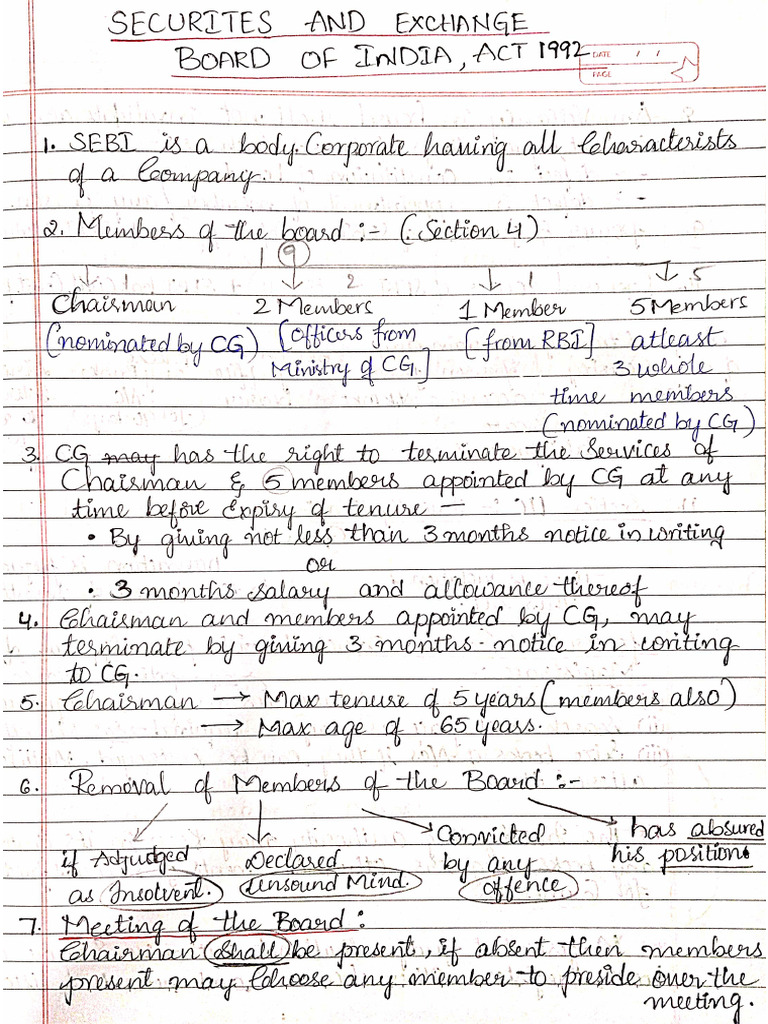 SECURITES AND EXCHANGE
BOARD OF INDIA, ACT 1992
DATE / /
PAGE
1. SEBI is a body. Corporate having all Characterists
of a Company.
2. Members of the board :- (Section 4)
1 9 2 1 5
Chairman 2 Members 1 Member 5 Members
(nominated by CG) [Officers from [from RBI] atleast
Ministry of CG.] 3 whole
time members
(nominated by CG)
3. CG may has the right to terminate the services of
Chairman & 5 members appointed by CG at any
time before Expiry of tenure —
• By giving not less than 3 months notice in writing
or
• 3 months salary and allowance thereof
4. Chairman and members appointed by CG, may
terminate by giving 3 months notice in writing
to CG.
5. Chairman → Max tenure of 5 years (members also)
→ Max age of 65 years.
6. Removal of Members of the Board :-
if Adjudged Declared Convicted has absured
as Insolvent. Unsound Mind. by any his position.
offence
7. Meeting of the Board :
Chairman shall be present, if absent then members
present may Choose any member to preside over the
meeting.